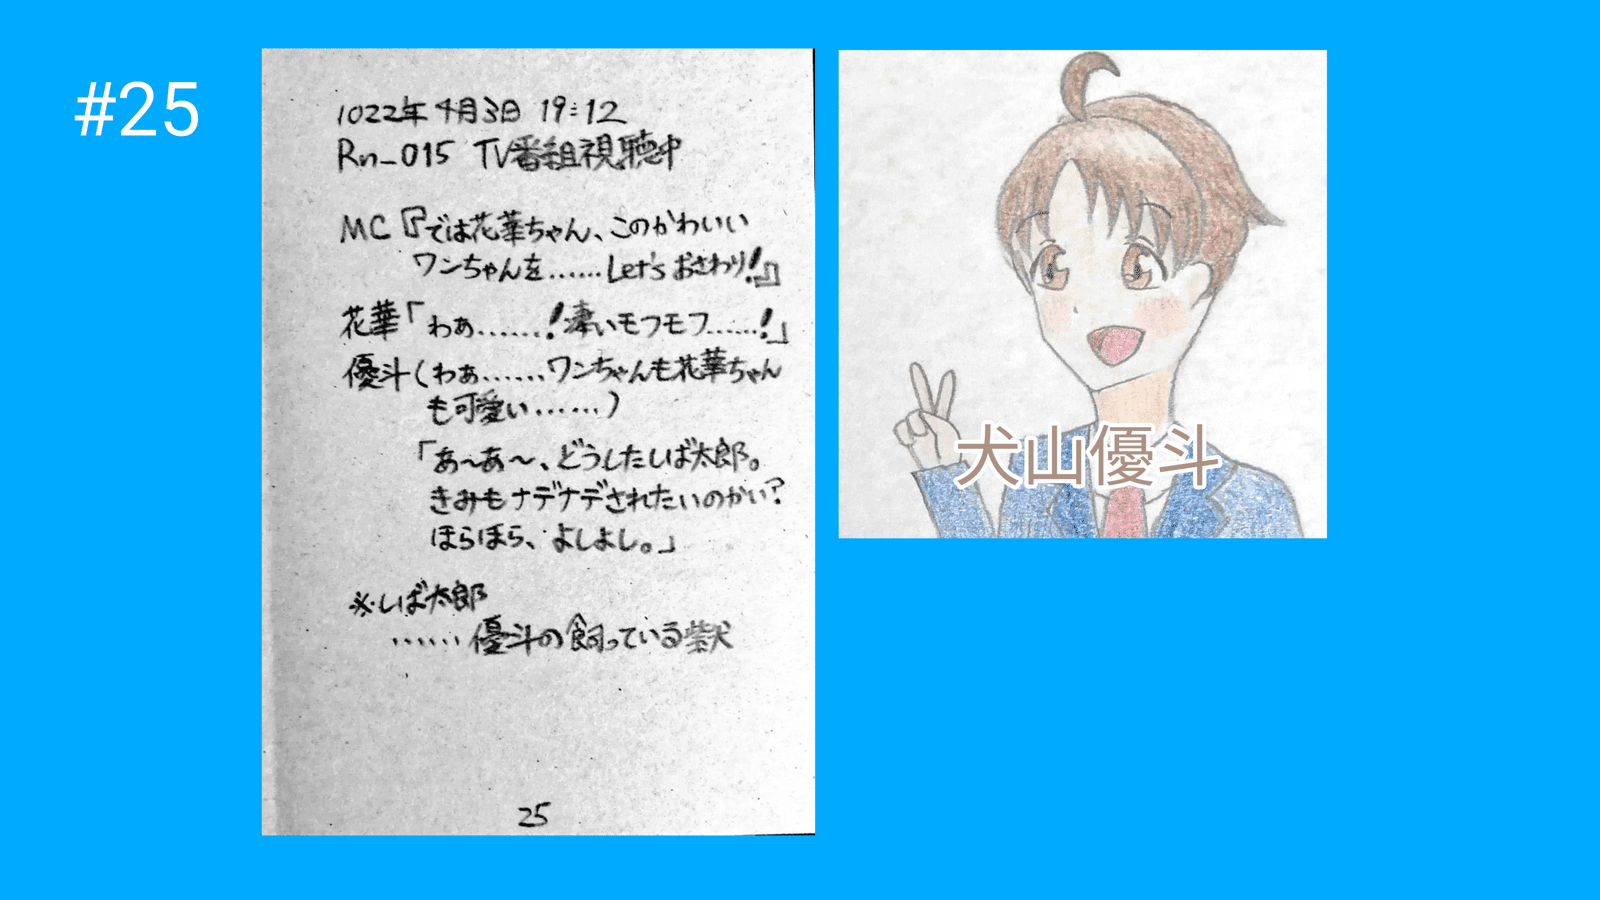 #25
1022年4月3日 19:12
Rn_015 TV番組視聴中
MC『では花華ちゃん、このかわいい
ワンちゃんを……Let's おさわり!』
花華「わぁ……!凄いモフモフ……!」
優斗(わぁ……ワンちゃんも花華ちゃん
も可愛い……)
「あ~あ~、どうしたしば太郎。
きみもナデナデされたいのかい?
ほらほら、よしよし。」
※しば太郎
……優斗の飼っている柴犬
25
犬山優斗